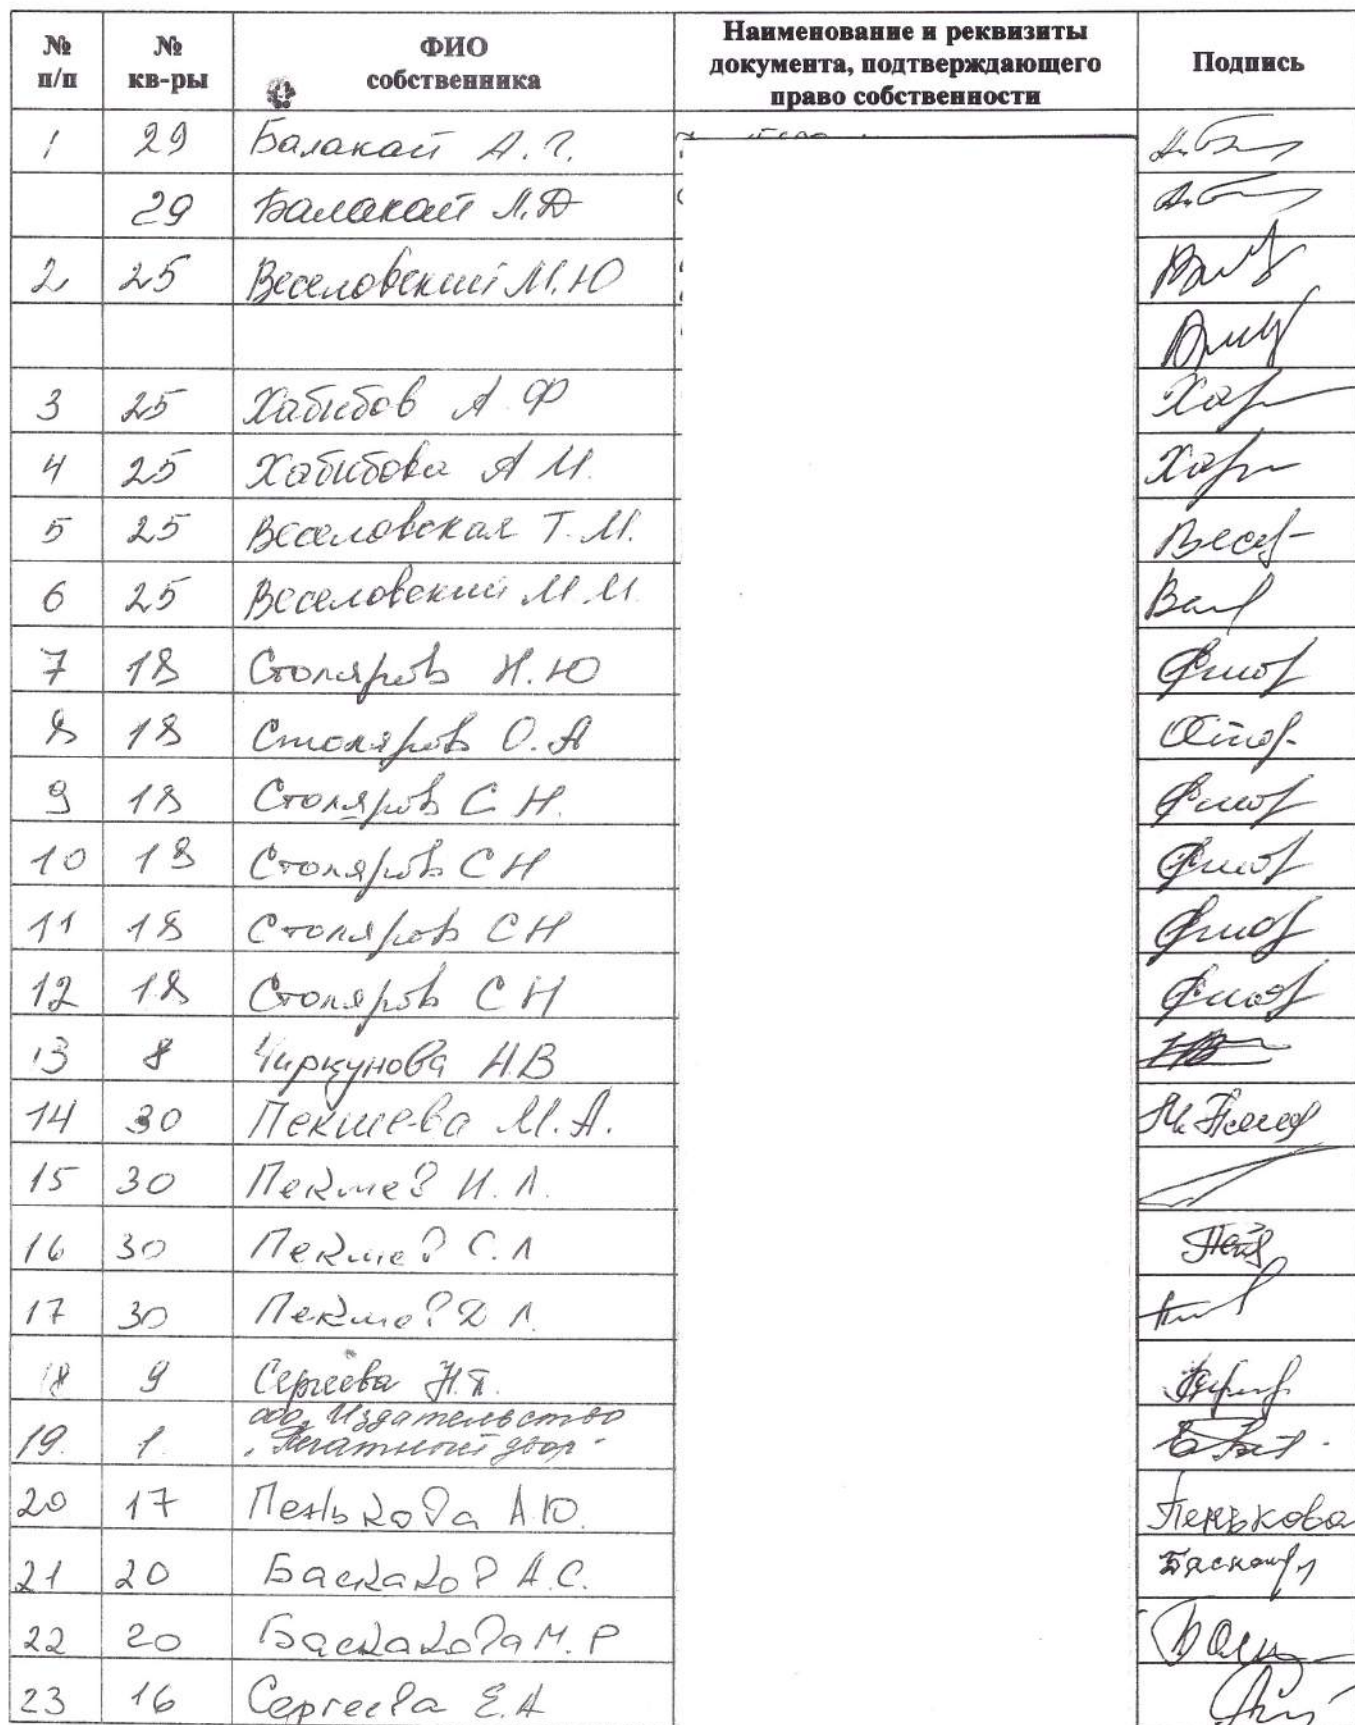 № п/п № кв-ры ФИО собственника Наименование и реквизиты документа, подтверждающего право собственности Подпись
1 29 Балакай А.Г.
29 Балакай Л.Д
2 25 Веселовский М.Ю
3 25 Хабибов А Ф
4 25 Хабибова А М. Хар
5 25 Веселовская Т.М. Весел
6 25 Веселовский М М.
7 18 Столяров Н.Ю
8 18 Столяров О.А
9 18 Столяров С Н.
10 18 Столяров С Н
11 18 Столяров С Н
12 18 Столяров С Н
13 8 Чиркунова Н.В
14 30 Пекшева М.А.
15 30 Пекшев И.Л.
16 30 Пекшев С.Л
17 30 Пекшев Д Л.
18 9 Сергеева Н.П.
19. 1. ооо, Издательство
"Печатный двор"
20 17 Пенькова А.Ю. Пенькова
21 20 Баскаков А.С.
22 20 Баскакова М.Р
23 16 Сергеева Е.А